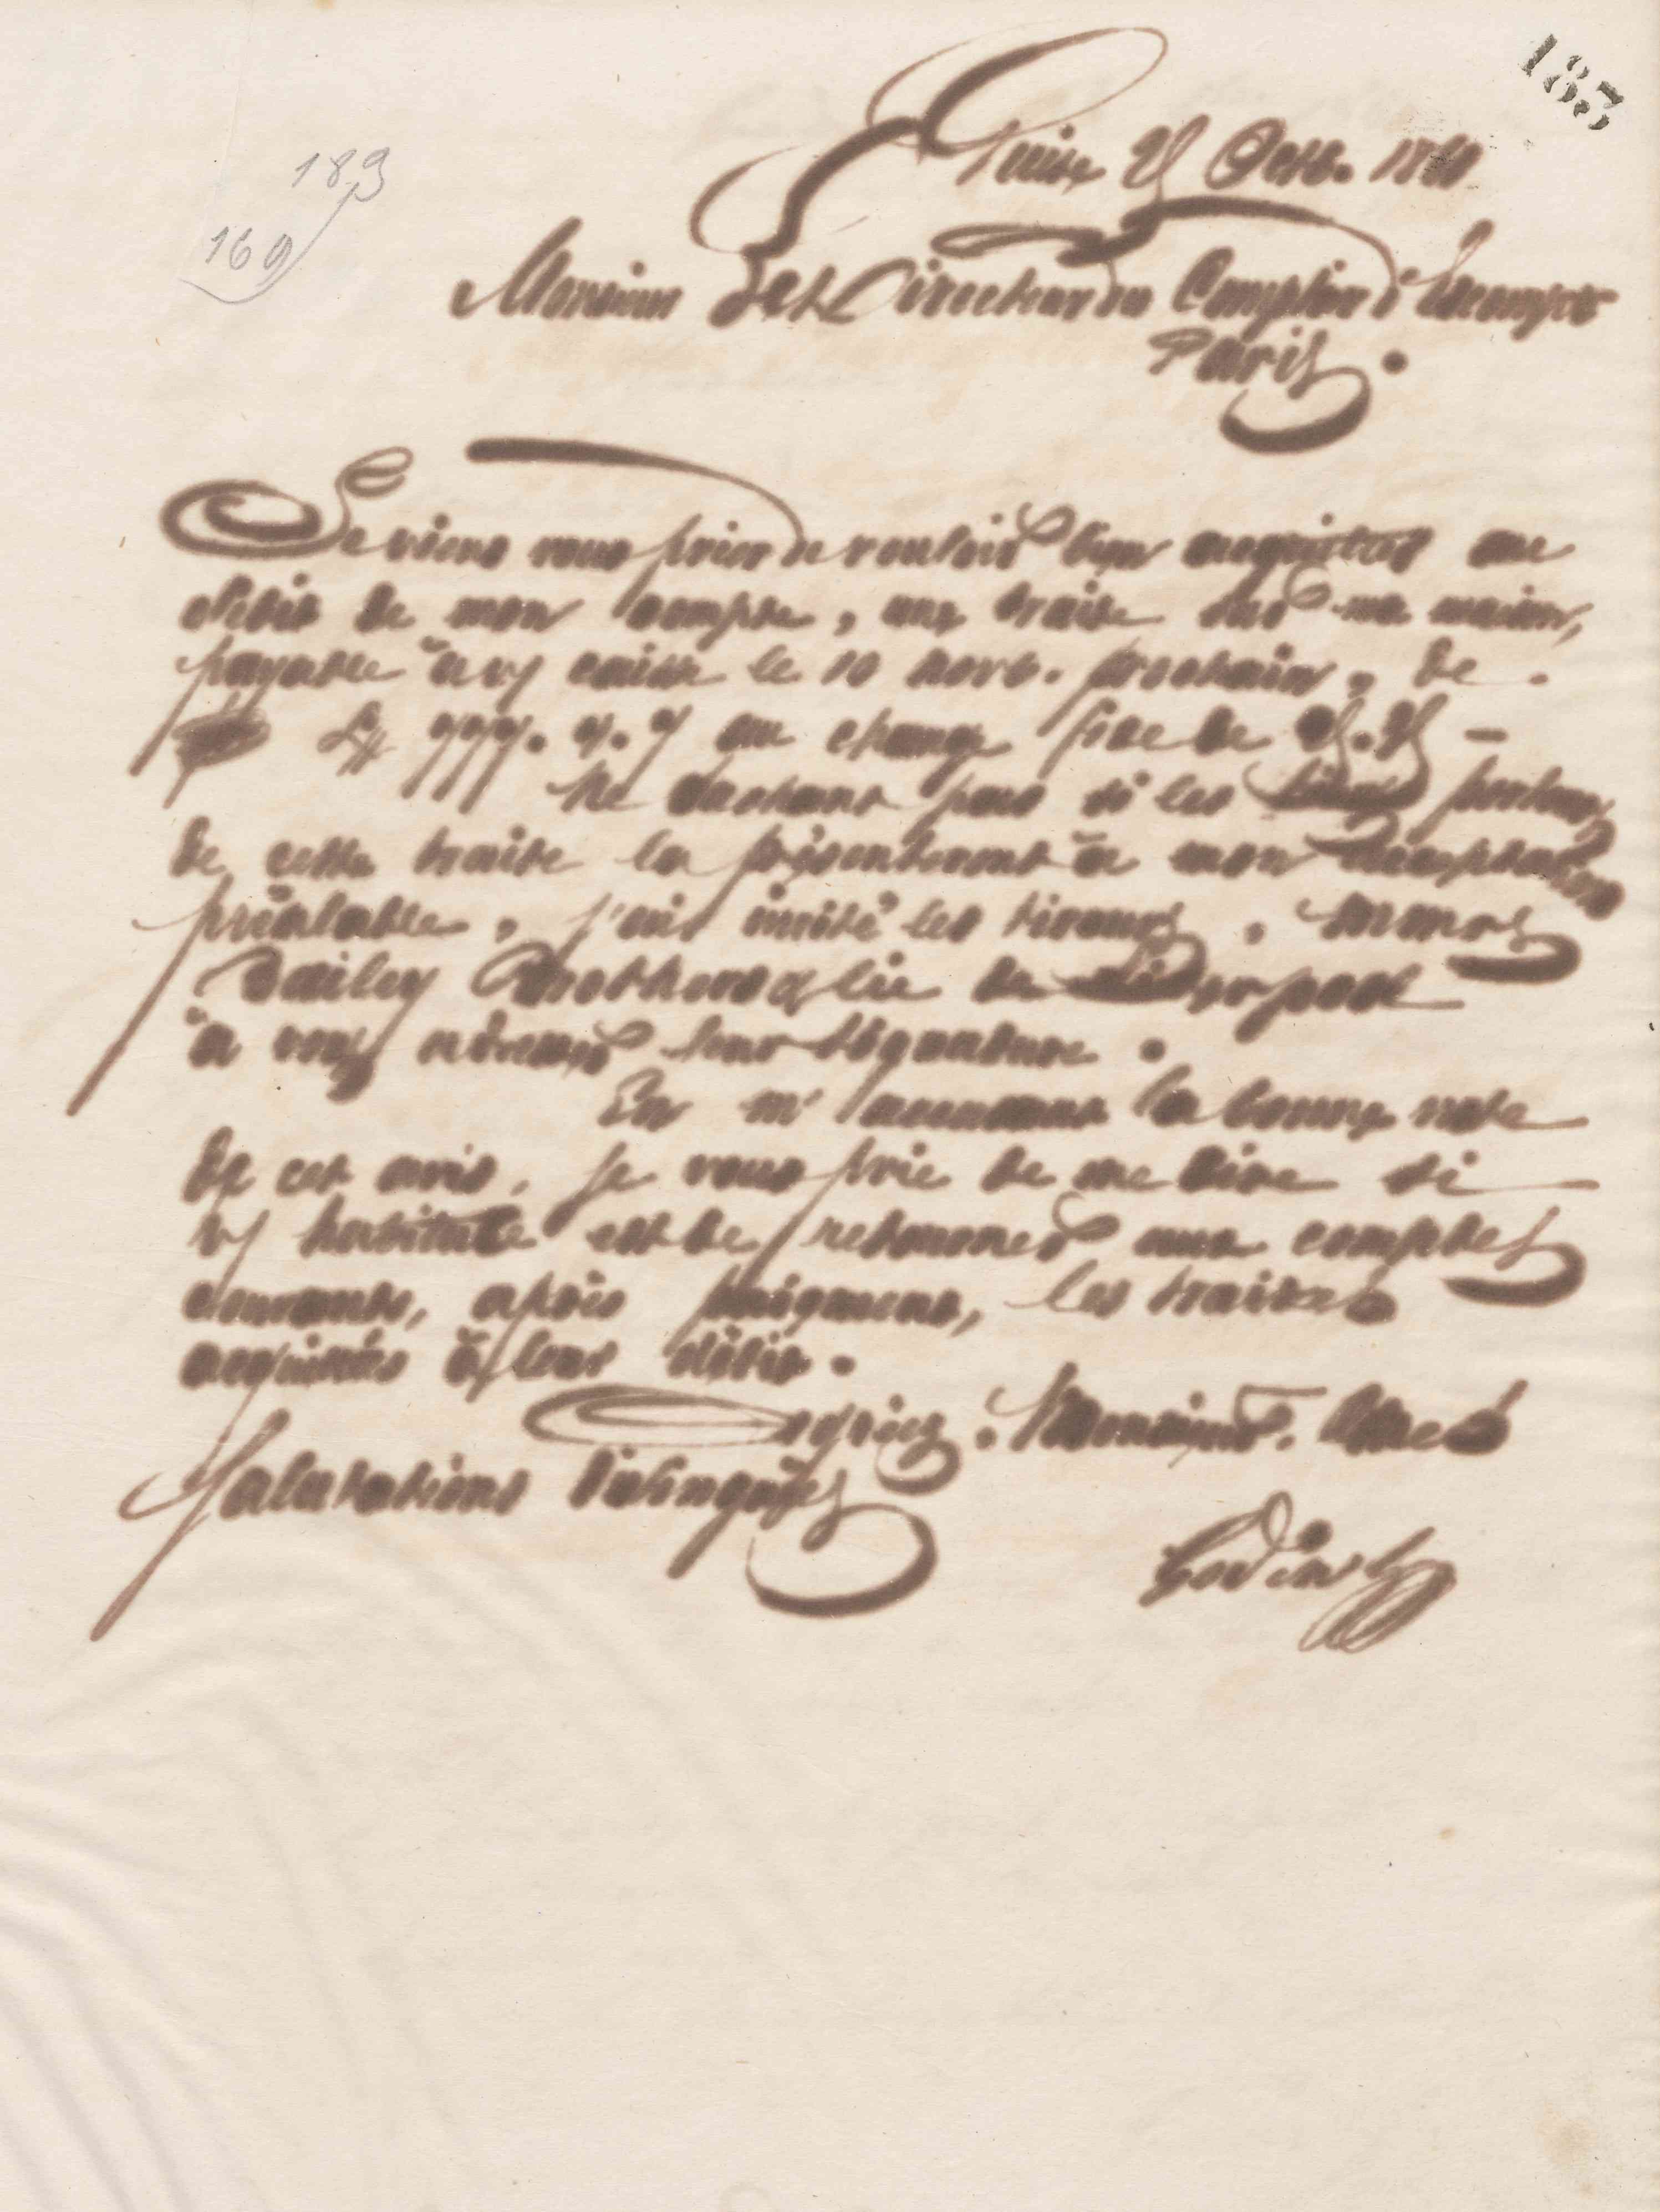 183
189
169
Guise 25 Octb. 18
Monsieur Le Directeur du Comptoir d'Escompte
Paris.
Je viens vous prier de vouloir bien acquitter au
débit de mon compte, une traite sur ma maison,
payable à vj caisse le 10 novb. prochain, de
au change fixe de
Ne sachant pas si les porteurs
de cette traite la présenteront à mon acceptation
préalable, j'ai invité les tireurs,
Dailey Brothers & Cie de Liverpool
à vous adresser leur signature.
En m'accusant la bonne note
de cet avis, je vous prie de me dire si
vj habitude est de retourner aux comptes
courants, après paiement, les traites
acquittées à leur débit.
Agréez, Monsieur, mes
salutations distinguées
Godin